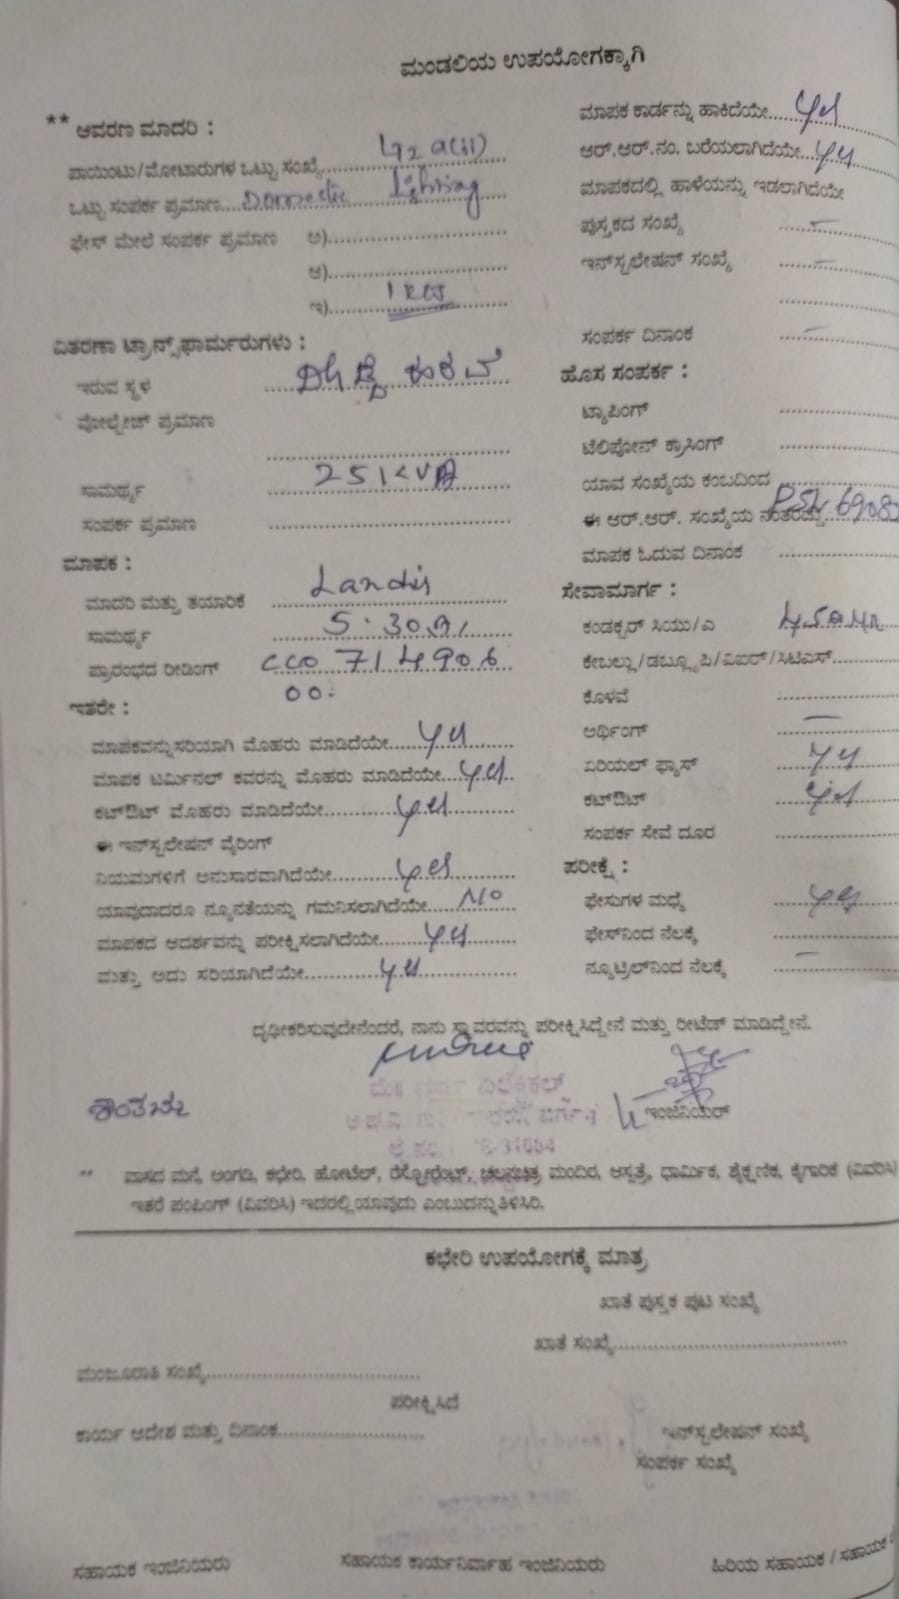 ಮಂಡಲಿಯ ಉಪಯೋಗಕ್ಕಾಗಿ
** ಆವರಣ ಮಾದರಿ :
ಪಾಯಿಂಟು/ಮೋಟಾರುಗಳ ಒಟ್ಟು ಸಂಖ್ಯೆ
ಒಟ್ಟು ಸಂಪರ್ಕ ಪ್ರಮಾಣ....Domestic Lighting
ಫೇಸ್ ಮೇಲೆ ಸಂಪರ್ಕ ಪ್ರಮಾಣ ಅ)
ಆ)
ಇ) 1 KW
ವಿತರಣಾ ಟ್ರಾನ್ಸ್‌ಫಾರ್ಮರುಗಳು :
ಇರುವ ಸ್ಥಳ
ವೋಲ್ಟೇಜ್ ಪ್ರಮಾಣ
ಸಾಮರ್ಥ್ಯ 25 KVA
ಸಂಪರ್ಕ ಪ್ರಮಾಣ
ಮಾಪಕ :
ಮಾದರಿ ಮತ್ತು ತಯಾರಿಕೆ Landis
ಸಾಮರ್ಥ್ಯ 5-30 A
ಪ್ರಾರಂಭದ ರೀಡಿಂಗ್ 714906
00
ಇತರೇ :
ಮಾಪಕವನ್ನು ಸರಿಯಾಗಿ ಮೊಹರು ಮಾಡಿದೆಯೇ.....yes
ಮಾಪಕ ಟರ್ಮಿನಲ್ ಕವರನ್ನು ಮೊಹರು ಮಾಡಿದೆಯೇ...yes
ಕಟ್‌ಔಟ್ ಮೊಹರು ಮಾಡಿದೆಯೇ.....yes
ಈ ಇನ್‌ಸ್ಟಲೇಷನ್ ವೈರಿಂಗ್
ನಿಯಮಗಳಿಗೆ ಅನುಸಾರವಾಗಿದೆಯೇ.....yes
ಯಾವುದಾದರೂ ನ್ಯೂನತೆಯನ್ನು ಗಮನಿಸಲಾಗಿದೆಯೇ....NO
ಮಾಪಕದ ಆದರ್ಶವನ್ನು ಪರೀಕ್ಷಿಸಲಾಗಿದೆಯೇ.....yes
ಮತ್ತು ಅದು ಸರಿಯಾಗಿದೆಯೇ.....yes
ಮಾಪಕ ಕಾರ್ಡನ್ನು ಹಾಕಿದೆಯೇ....yes
ಆರ್.ಆರ್.ನಂ. ಬರೆಯಲಾಗಿದೆಯೇ....yes
ಮಾಪಕದಲ್ಲಿ ಹಾಳೆಯನ್ನು ಇಡಲಾಗಿದೆಯೇ
ಪುಸ್ತಕದ ಸಂಖ್ಯೆ —
ಇನ್‌ಸ್ಟಲೇಷನ್ ಸಂಖ್ಯೆ —
ಸಂಪರ್ಕ ದಿನಾಂಕ —
ಹೊಸ ಸಂಪರ್ಕ :
ಟ್ಯಾಪಿಂಗ್
ಟೆಲಿಫೋನ್ ಕ್ರಾಸಿಂಗ್
ಯಾವ ಸಂಖ್ಯೆಯ ಕಂಬದಿಂದ
ಈ ಆರ್.ಆರ್. ಸಂಖ್ಯೆಯ ನಂತರದ್ದು
ಮಾಪಕ ಓದುವ ದಿನಾಂಕ
ಸೇವಾಮಾರ್ಗ :
ಕಂಡಕ್ಟರ್ ಸಿಯು/ಎ
ಕೇಬಲ್ಲು/ಡಬ್ಲ್ಯೂಪಿ/ವಿಐಆರ್/ಸಿಟಿಎಸ್
ಕೊಳವೆ
ಅರ್ಥಿಂಗ್ —
ಏರಿಯಲ್ ಫ್ಯೂಸ್ yes
ಕಟ್‌ಔಟ್ yes
ಸಂಪರ್ಕ ಸೇವೆ ದೂರ
ಪರೀಕ್ಷೆ :
ಫೇಸುಗಳ ಮಧ್ಯೆ yes
ಫೇಸ್‌ನಿಂದ ನೆಲಕ್ಕೆ
ನ್ಯೂಟ್ರಲ್‌ನಿಂದ ನೆಲಕ್ಕೆ —
ದೃಢೀಕರಿಸುವುದೇನೆಂದರೆ, ನಾನು ಸ್ಥಾವರವನ್ನು ಪರೀಕ್ಷಿಸಿದ್ದೇನೆ ಮತ್ತು ರೀಟೆಡ್ ಮಾಡಿದ್ದೇನೆ.
ಇಂಜಿನಿಯರ್
** ವಾಸದ ಮನೆ, ಅಂಗಡಿ, ಕಛೇರಿ, ಹೋಟೆಲ್, ರೆಸ್ಟೋರೆಂಟ್, ಚಲನಚಿತ್ರ ಮಂದಿರ, ಆಸ್ಪತ್ರೆ, ಧಾರ್ಮಿಕ, ಶೈಕ್ಷಣಿಕ, ಕೈಗಾರಿಕೆ (ವಿವರಿಸಿ)
ಇತರೆ ಪಂಪಿಂಗ್ (ವಿವರಿಸಿ) ಇದರಲ್ಲಿ ಯಾವುದು ಎಂಬುದನ್ನು ತಿಳಿಸಿರಿ.
ಕಛೇರಿ ಉಪಯೋಗಕ್ಕೆ ಮಾತ್ರ
ಖಾತೆ ಪುಸ್ತಕ ಪುಟ ಸಂಖ್ಯೆ
ಖಾತೆ ಸಂಖ್ಯೆ
ಮಂಜೂರಾತಿ ಸಂಖ್ಯೆ
ಪರೀಕ್ಷಿಸಿದೆ
ಕಾರ್ಯ ಆದೇಶ ಮತ್ತು ದಿನಾಂಕ
ಇನ್‌ಸ್ಟಲೇಷನ್ ಸಂಖ್ಯೆ
ಸಂಪರ್ಕ ಸಂಖ್ಯೆ
ಸಹಾಯಕ ಇಂಜಿನಿಯರು ಸಹಾಯಕ ಕಾರ್ಯನಿರ್ವಾಹ ಇಂಜಿನಿಯರು ಹಿರಿಯ ಸಹಾಯಕ / ಸಹಾಯಕ